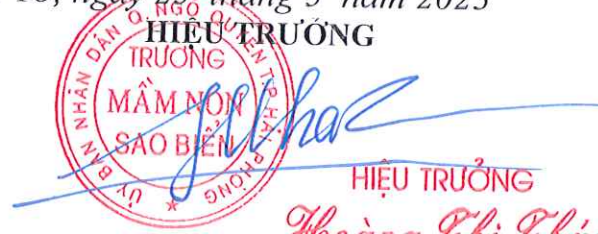 ngày 29 tháng 5 năm 2025
HIỆU TRƯỞNG
ỦY BAN NHÂN DÂN Q. NGÔ QUYỀN T.P HẢI PHÒNG
TRƯỜNG
MẦM NON
SAO BIỂN
HIỆU TRƯỞNG
Hoàng Thị